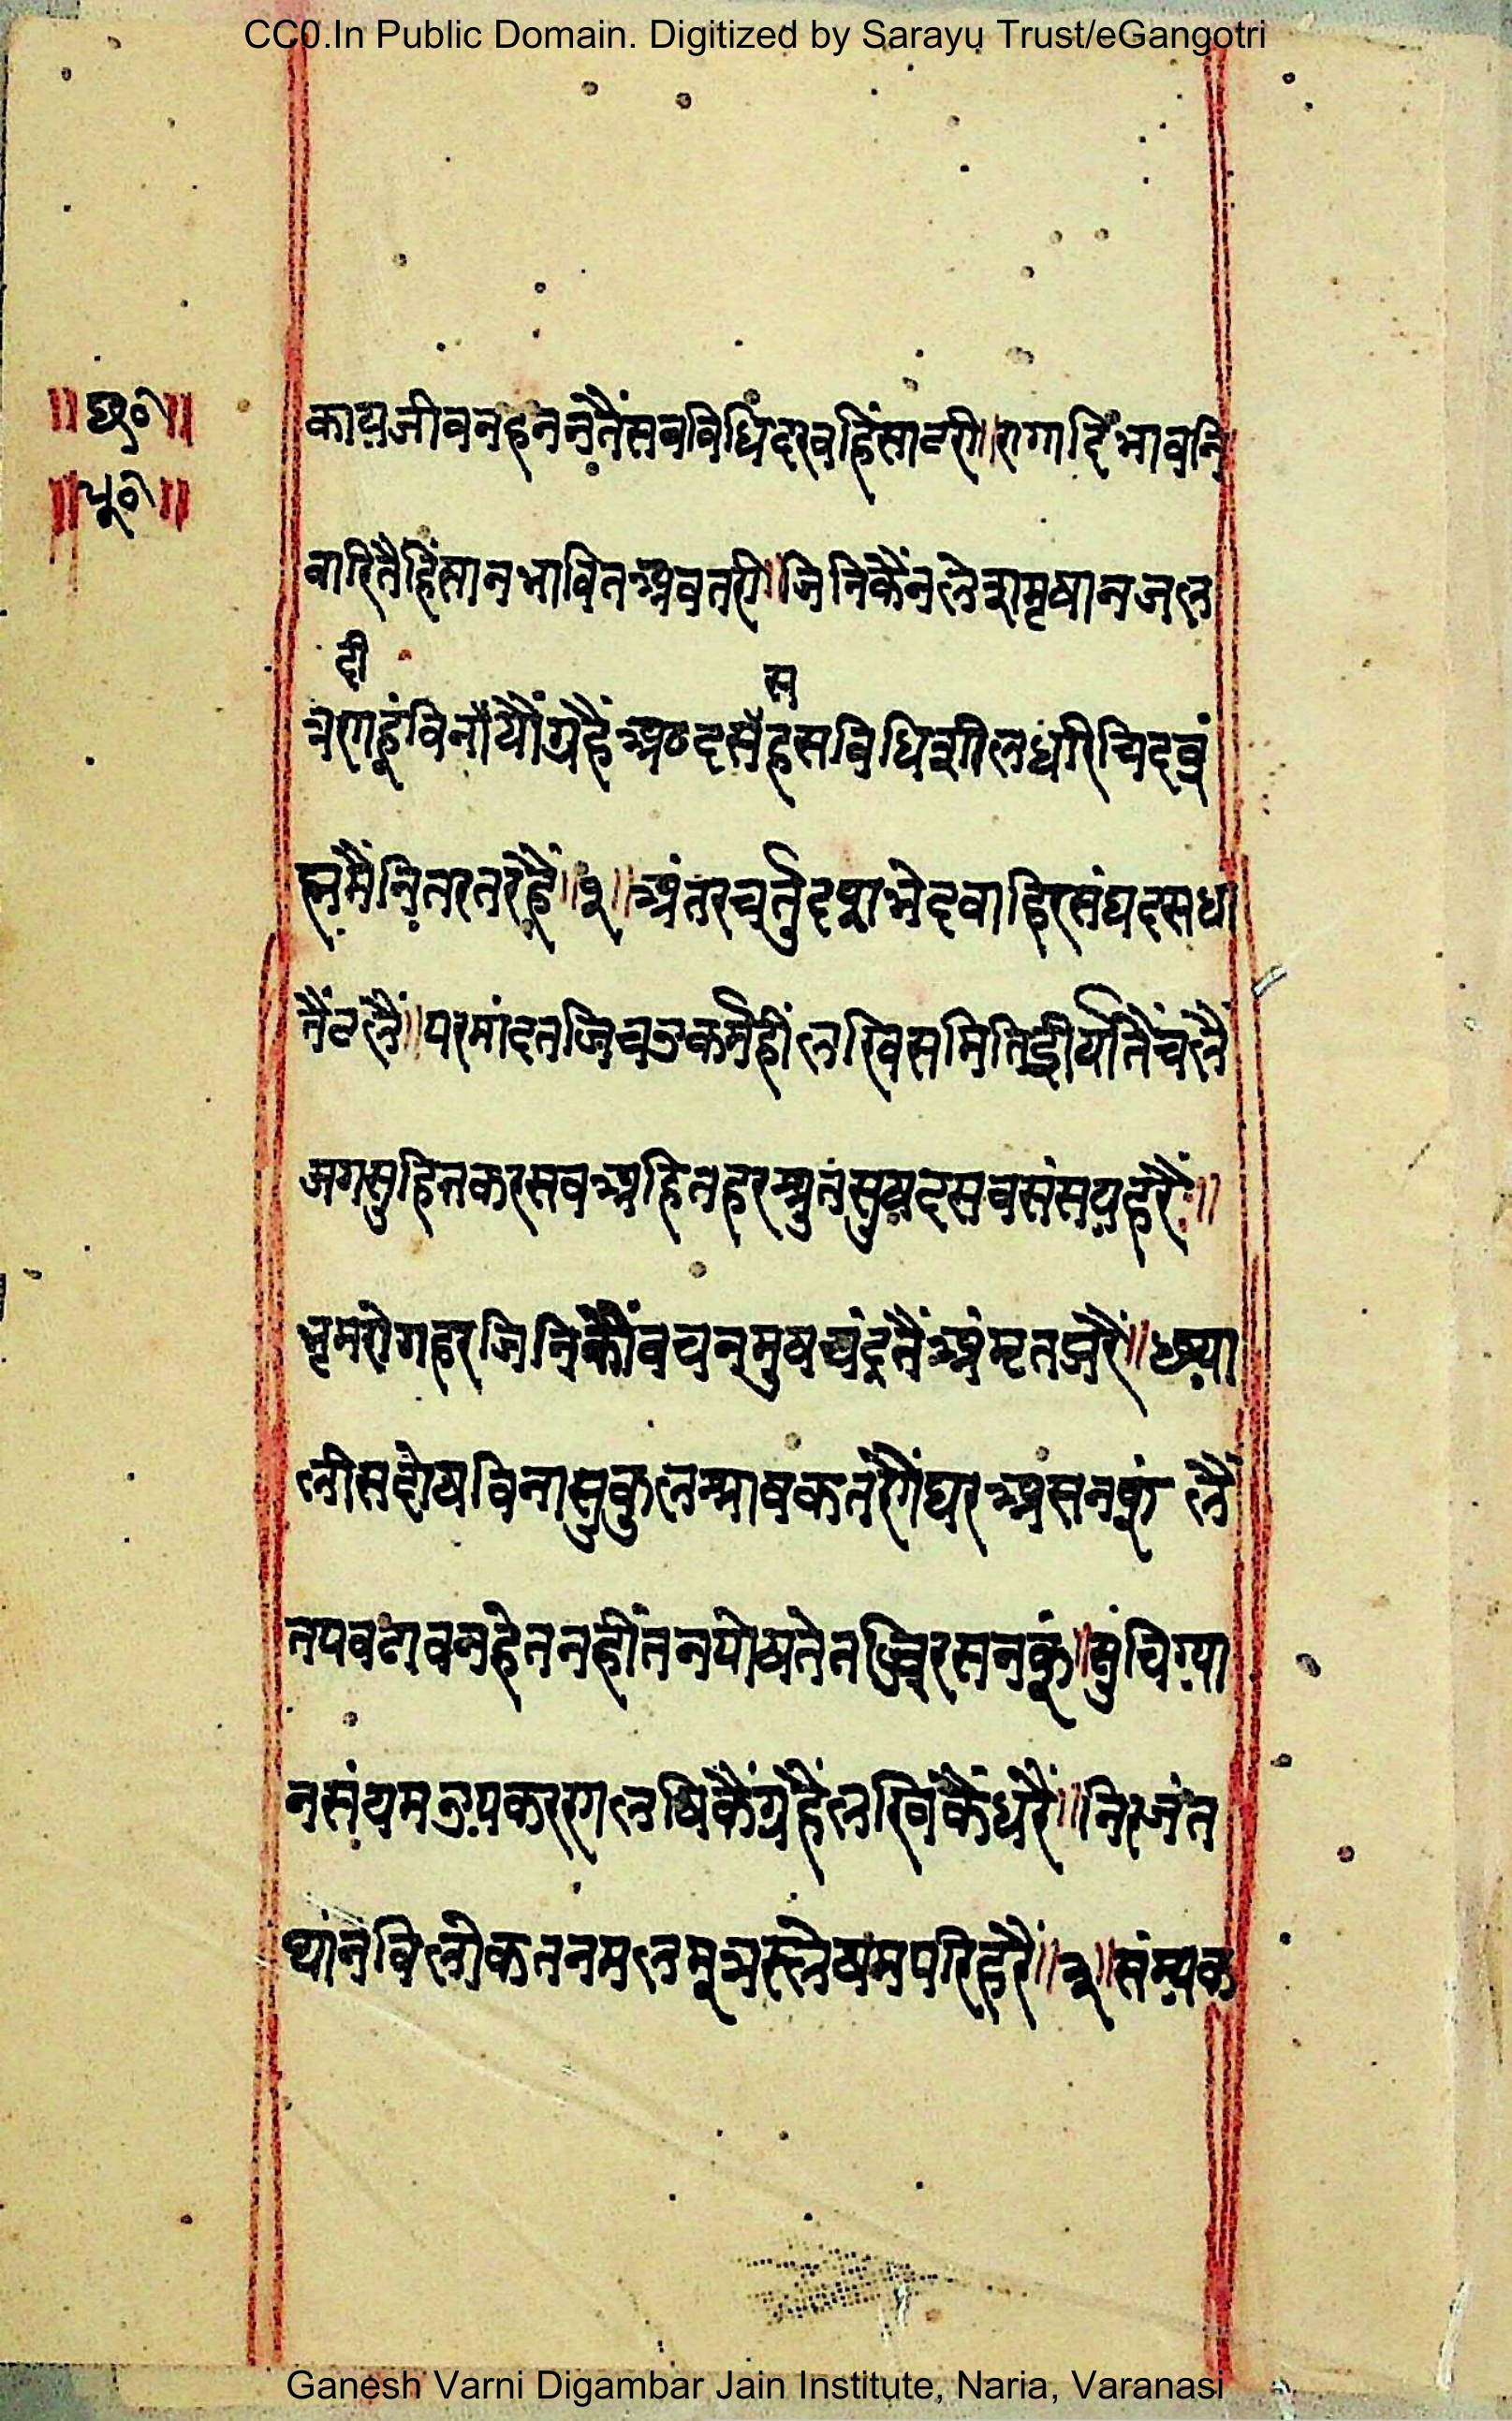 CC0.In Public Domain. Digitized by Sarayu Trust/eGangotri
॥छ०॥
॥धू०॥
काय जीवनहननतैंसबबिधिंदरवहिंसाटरी॥रागादिंभावनि
वारितैहिंसानभावितअवतरी॥जिनिकैंनलेशमृषानजल
दी
स
त्रणहूंविनांयौंग्रहैंअठदसैंहसविधिशीलधरिचिदव्रं
ह्ममैंनितरतरहैं॥१॥अंतरचर्तुदशभेदवाहिरसंघदसधा
तैंटलैं॥परमांदतजिचउकमैहींलखिसमितिईर्यातैंचलैं
जगसुहितकरसवअहितहरश्रुतसुखदसवसंसयहरैं॥
भ्रमरोगहरजिनिकौंवचनमुषचंद्रतैंअंमृतझरैं॥छ्या
लीसदोषविनासुकुलश्रावकतंरोंघरअसनकूं लैं
तपवढावनहेतनहींतनपोषतेतजिरसनकूं॥सुंचिग्या
नसंयमउपकरणलषिकैंग्रहैंलखिंकैंधरैं॥निरजंत
थांनविलोकतनमलमूत्रस्लेषमपरिहरैं॥२॥संम्यक
Ganesh Varni Digambar Jain Institute, Naria, Varanasi